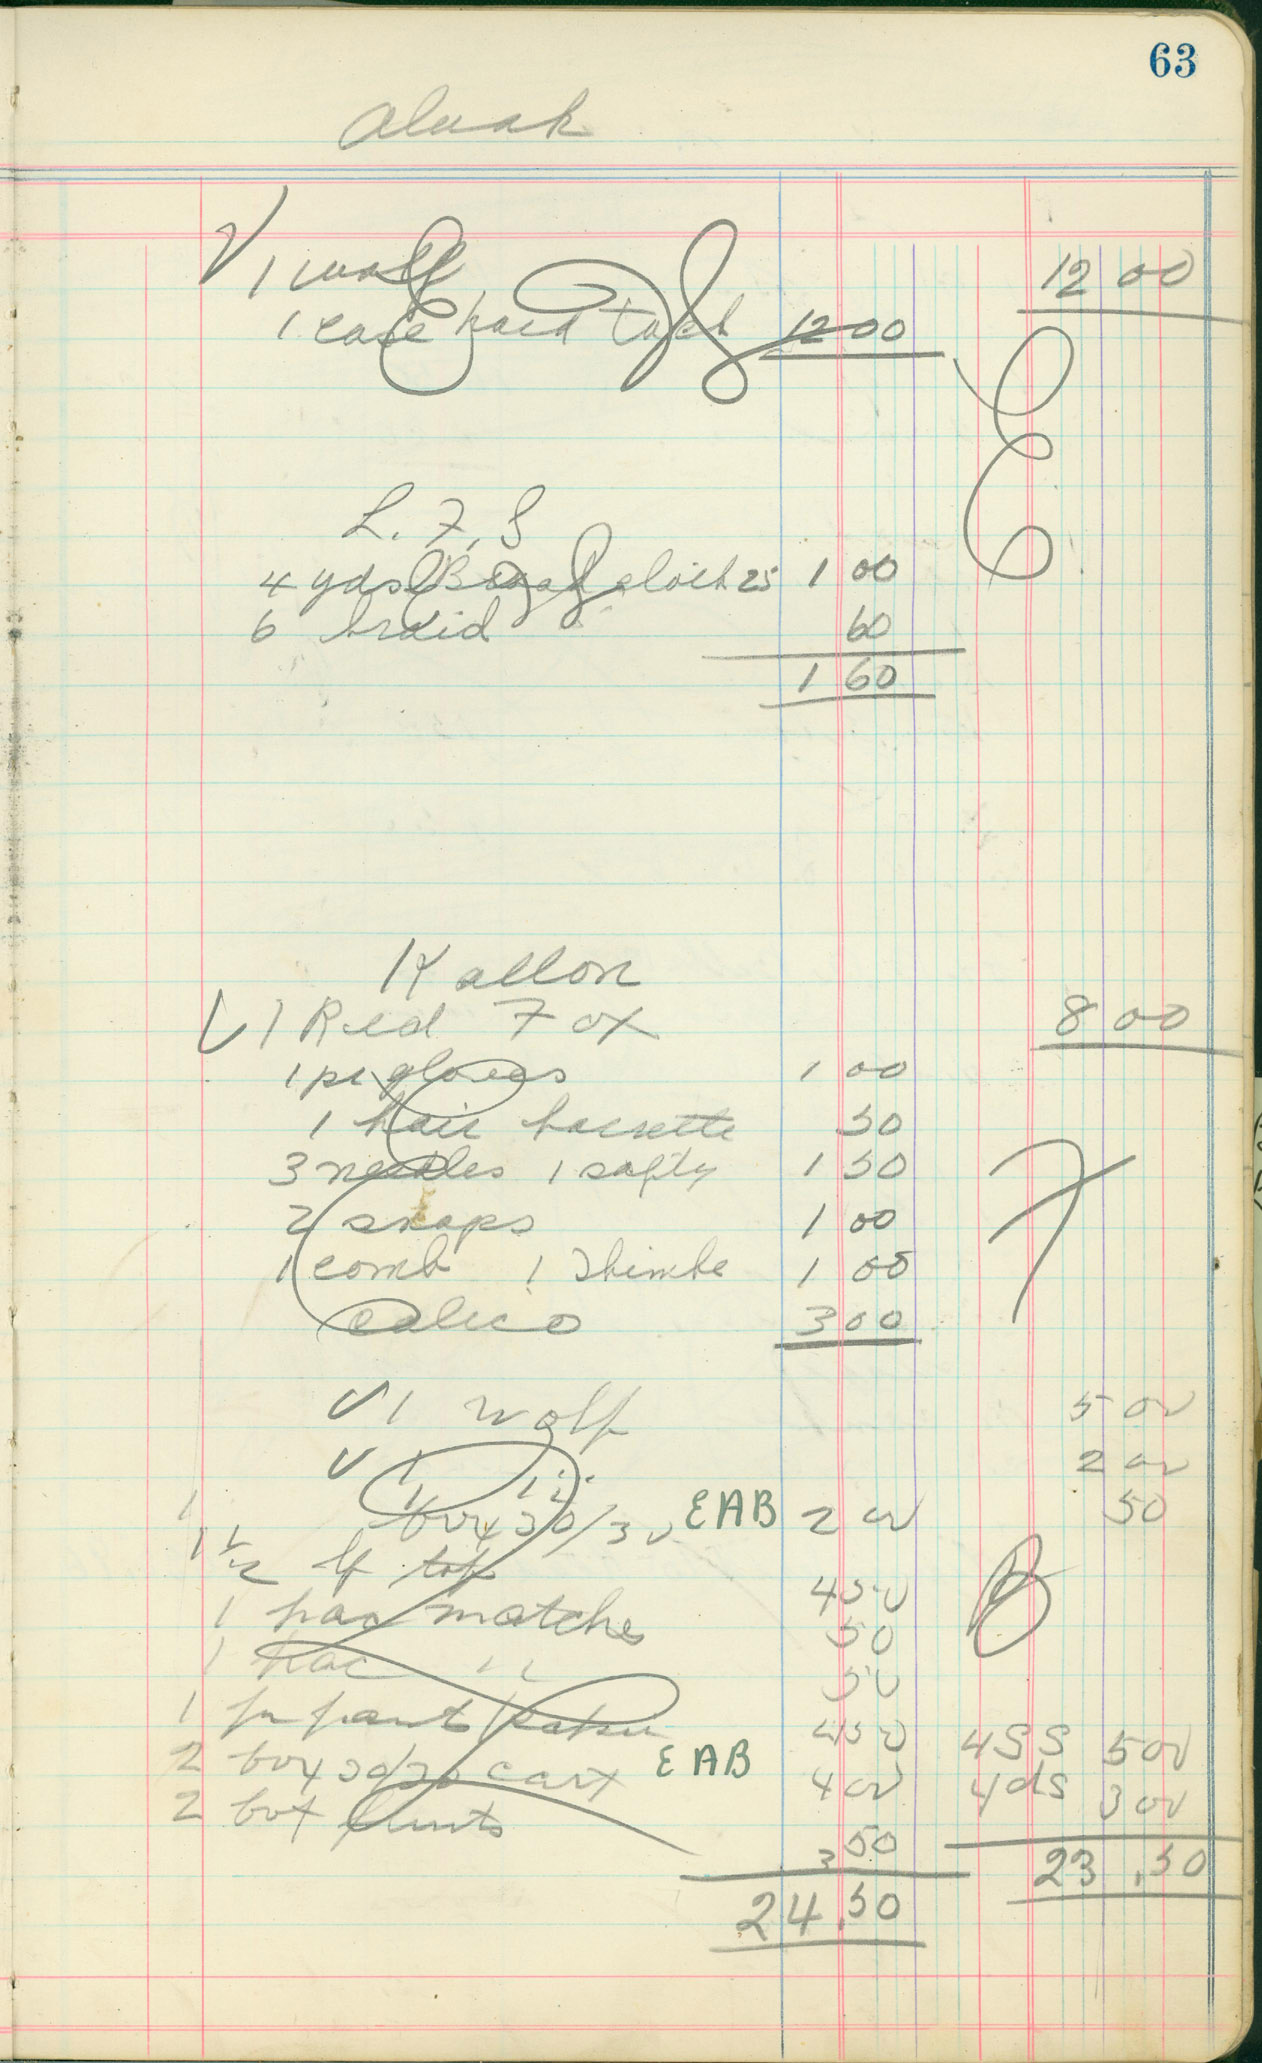 63
Aluak
1 wolf 12 00
1 case hard tack 12 00
E
L. F. S
4 yds Broad cloth 25 1 00
6 braid 60
1 60
Kallon
1 Red Fox 8 00
1 pr gloves 1 00
1 hair 50
3 needles 1 safty 1 50
2 snaps 1 00
1 comb 1 Thimble 1 00
calico 3 00
1 wolf 5 00
1 " 2 00
1 box 30/30 EAB 2 00 50
1 1/2 lf 4 50
1 pac matches 50
1 pac " 50
1 pr pant 4 50 4SS 5 00
2 box 30/30 cart EAB 4 00 4ds 3 00
2 box 3 50
23.50
24.50